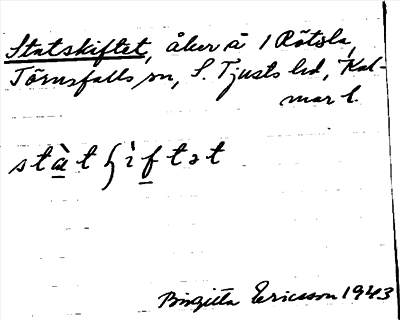 Statskiftet, åker å 1 Rötsla,
Törnsfalls sn, S. Tjusts hd, Kal-
mar l.
stàtʃìftət
Birgitta Ericsson 1943